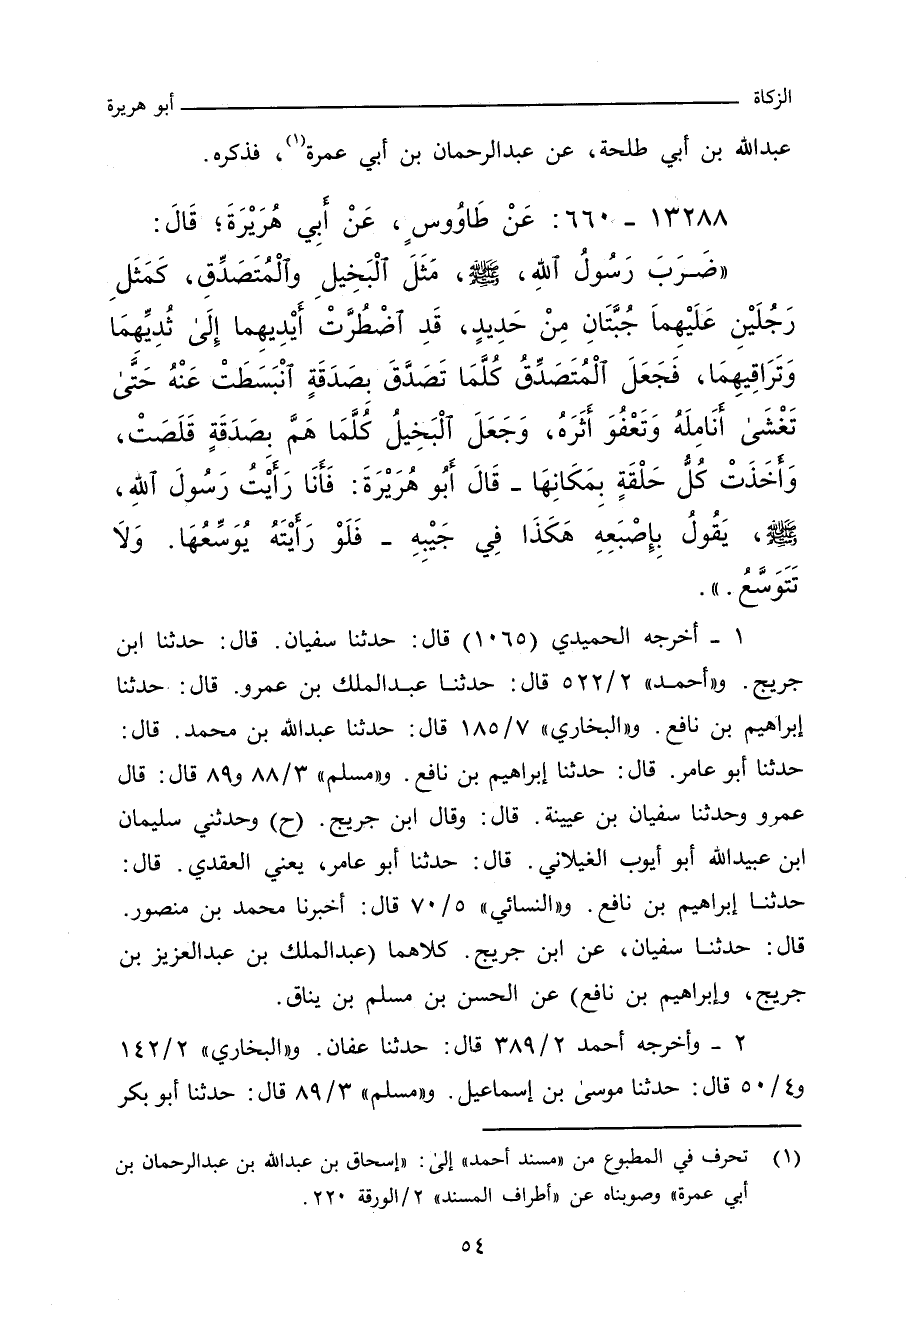 الزكاة ـــــــ أبو هريرة
عبدالله بن أبي طلحة، عن عبدالرحمان بن أبي عمرة(١)، فذكره.
١٣٢٨٨ ـ ٦٦٠: عَنْ طَاوُوسٍ، عَنْ أَبِي هُرَيْرَةَ؛ قَالَ:
«ضَرَبَ رَسُولُ ٱللهِ، ﷺ، مَثَلَ ٱلْبَخِيلِ وٱلْمُتَصَدِّقِ، كَمَثَلِ
رَجُلَيْنِ عَلَيْهِمَا جُبَّتَانِ مِنْ حَدِيدٍ، قَدِ ٱضْطُرَّتْ أَيْدِيهِما إِلَىٰ ثُدِيِّهِمَا
وَتَرَاقِيهِمَا، فَجَعَلَ ٱلْمُتَصَدِّقُ كُلَّمَا تَصَدَّقَ بِصَدَقَةٍ ٱنْبَسَطَتْ عَنْهُ حَتَّىٰ
تَغْشَىٰ أَنَامِلَهُ وَتَعْفُوَ أَثَرَهُ، وَجَعَلَ ٱلْبَخِيلُ كُلَّمَا هَمَّ بِصَدَقَةٍ قَلَصَتْ،
وَأَخَذَتْ كُلُّ حَلْقَةٍ بِمَكَانِهَا ـ قَالَ أَبُو هُرَيْرَةَ: فَأَنَا رَأَيْتُ رَسُولَ ٱللهِ،
ﷺ، يَقُولُ بِإِصْبَعِهِ هَكَذَا فِي جَيْبِهِ ـ فَلَوْ رَأَيْتَهُ يُوَسِّعُهَا. وَلَا
تَتَوَسَّعُ.».
١ ـ أخرجه الحميدي (١٠٦٥) قال: حدثنا سفيان. قال: حدثنا ابن
جريج. و«أحمد» ٥٢٢/٢ قال: حدثنا عبدالملك بن عمرو. قال: حدثنا
إبراهيم بن نافع. و«البخاري» ١٨٥/٧ قال: حدثنا عبدالله بن محمد. قال:
حدثنا أبو عامر. قال: حدثنا إبراهيم بن نافع. و«مسلم» ٨٨/٣ و٨٩ قال: قال
عمرو وحدثنا سفيان بن عيينة. قال: وقال ابن جريج. (ح) وحدثني سليمان
ابن عبيدالله أبو أيوب الغيلاني. قال: حدثنا أبو عامر، يعني العقدي. قال:
حدثنا إبراهيم بن نافع. و«النسائي» ٧٠/٥ قال: أخبرنا محمد بن منصور.
قال: حدثنا سفيان، عن ابن جريج. كلاهما (عبدالملك بن عبدالعزيز بن
جريج، وإبراهيم بن نافع) عن الحسن بن مسلم بن يناق.
٢ ـ وأخرجه أحمد ٣٨٩/٢ قال: حدثنا عفان. و«البخاري» ١٤٢/٢
و٥٠/٤ قال: حدثنا موسىٰ بن إسماعيل. و«مسلم» ٨٩/٣ قال: حدثنا أبو بكر
(١) تحرف في المطبوع من «مسند أحمد» إلىٰ: «إسحاق بن عبدالله بن عبدالرحمان بن
أبي عمرة» وصوبناه عن «أطراف المسند» ٢/الورقة ٢٢٠.
٥٤